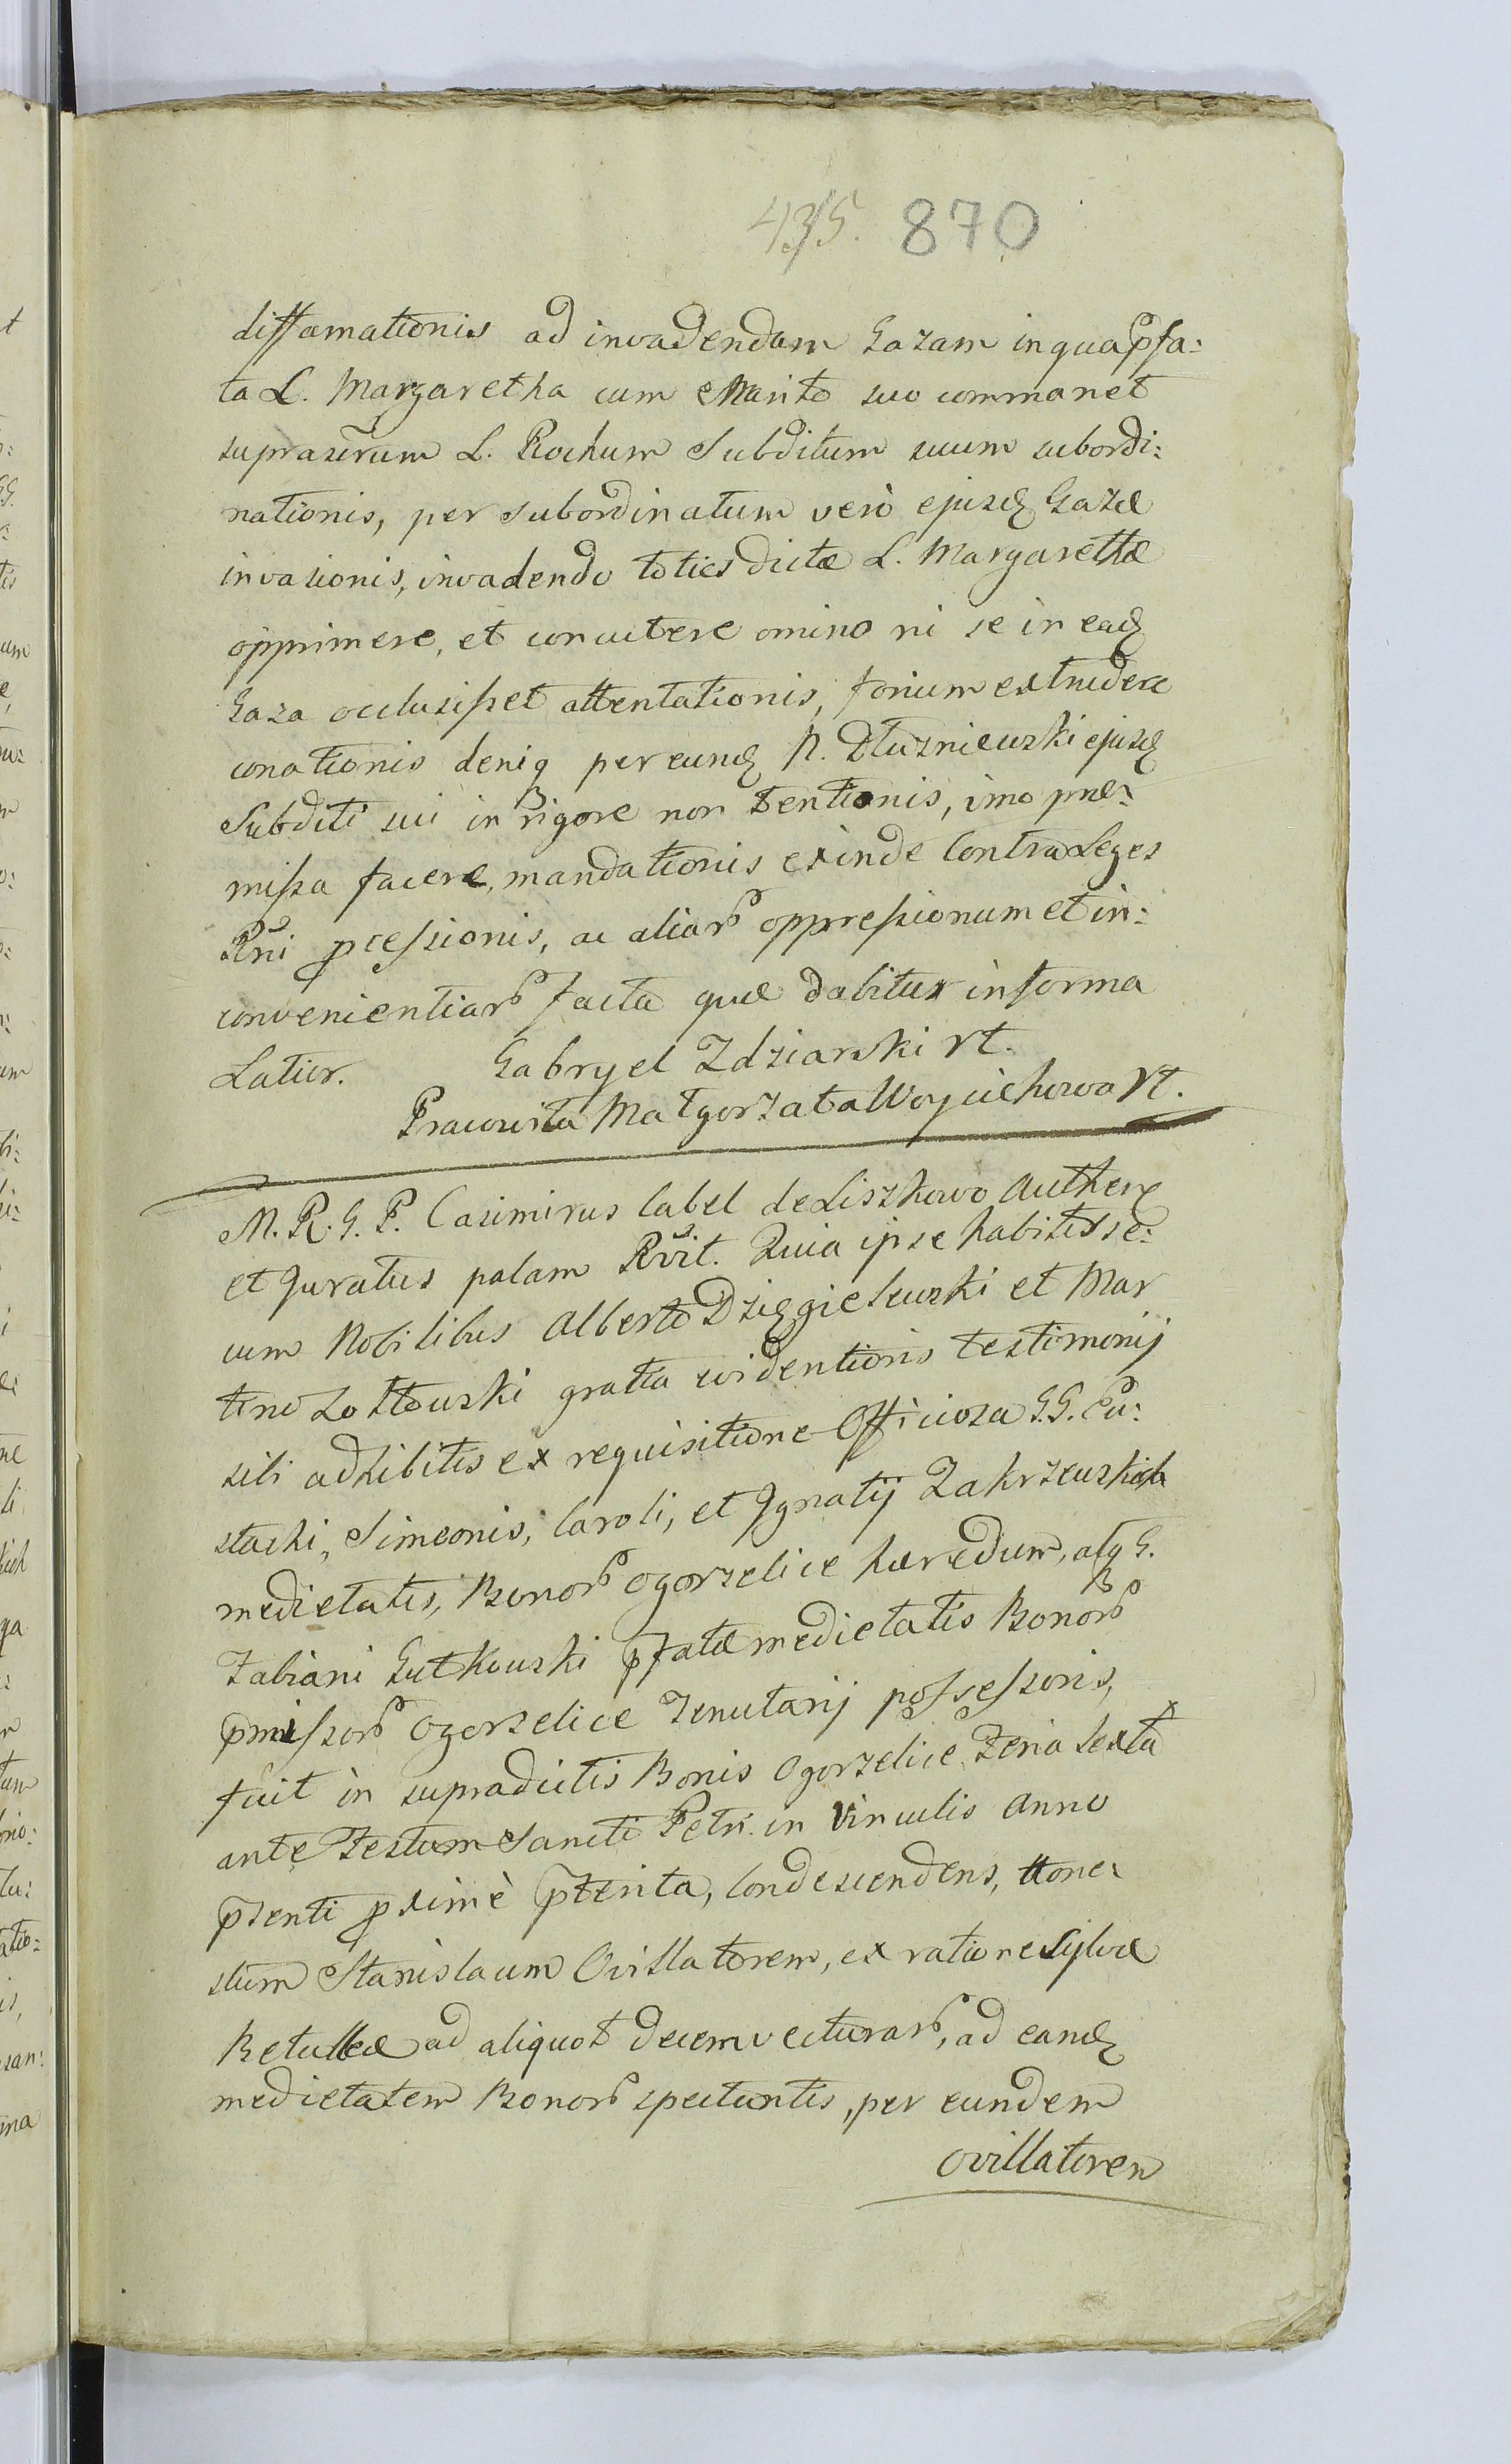 435. 870
diffamationis ad invadendam Gazam in qua p̃fa:
ta L. Margaretha cum Marito suo commanet
suprascrũm L. Rochum Subditum suum subordi:
nationis, per subordinatum verò ejusdꝫ Gazæ
invasionis, invadendo toties dictæ L. Margarethæ
opprimere, et concutere omino ni se in eadꝫ
Gaza occlusisset attentationis, forium extrudere
conationis deniq per eundꝫ N. Dłuzniewski ejusdꝫ
Subditi sui in rigore non tentionis, imo præ:
missa facere, mandationis exinde Contra Leges
Rñi pcessionis, ac aliarꝫ oppressionum et in:
convenientiarꝫ facta quæ dabitur in forma
Latior. Gabryel Zdziarski rt.
Pracowita Małgorzata Woyciechowa rt.
M. R. G. P. Casimirus Cabel de Liszkowo Authenꝫ
et Juratus palam Rc̃vit. Quia ipse habitis se:
cum Nobilibus Alberto Dzięgielewski et Mar
tino Zołtowski gratia evidentioris testimonij
sibi adhibitis ex requisitione Officiosa G.G. Eu:
stachi, Simeonis, Caroli, et Ignatij Zakrzewskich
medietatis, Bonorꝫ Ogorzelice hæredum, atq G.
Fabiani Gutkowski p̃fatæ medietatis Bonorꝫ
p̃missorꝫ Ogorzelice Tenutarij possessoris,
fuit in supradictis Bonis Ogorzelice, Feria Sexta
ante Festum Sancti Petri in Vinculis Anno
p̃senti pximè p̃terita, Condescendens, Hone:
stum Stanislaum Ovillatorem, ex ratione Sylvæ
Betulleæ ad aliquot decem vecturarꝫ, ad eandꝫ
medietatem Bonorꝫ spectantis, per eundem
ovillatorem